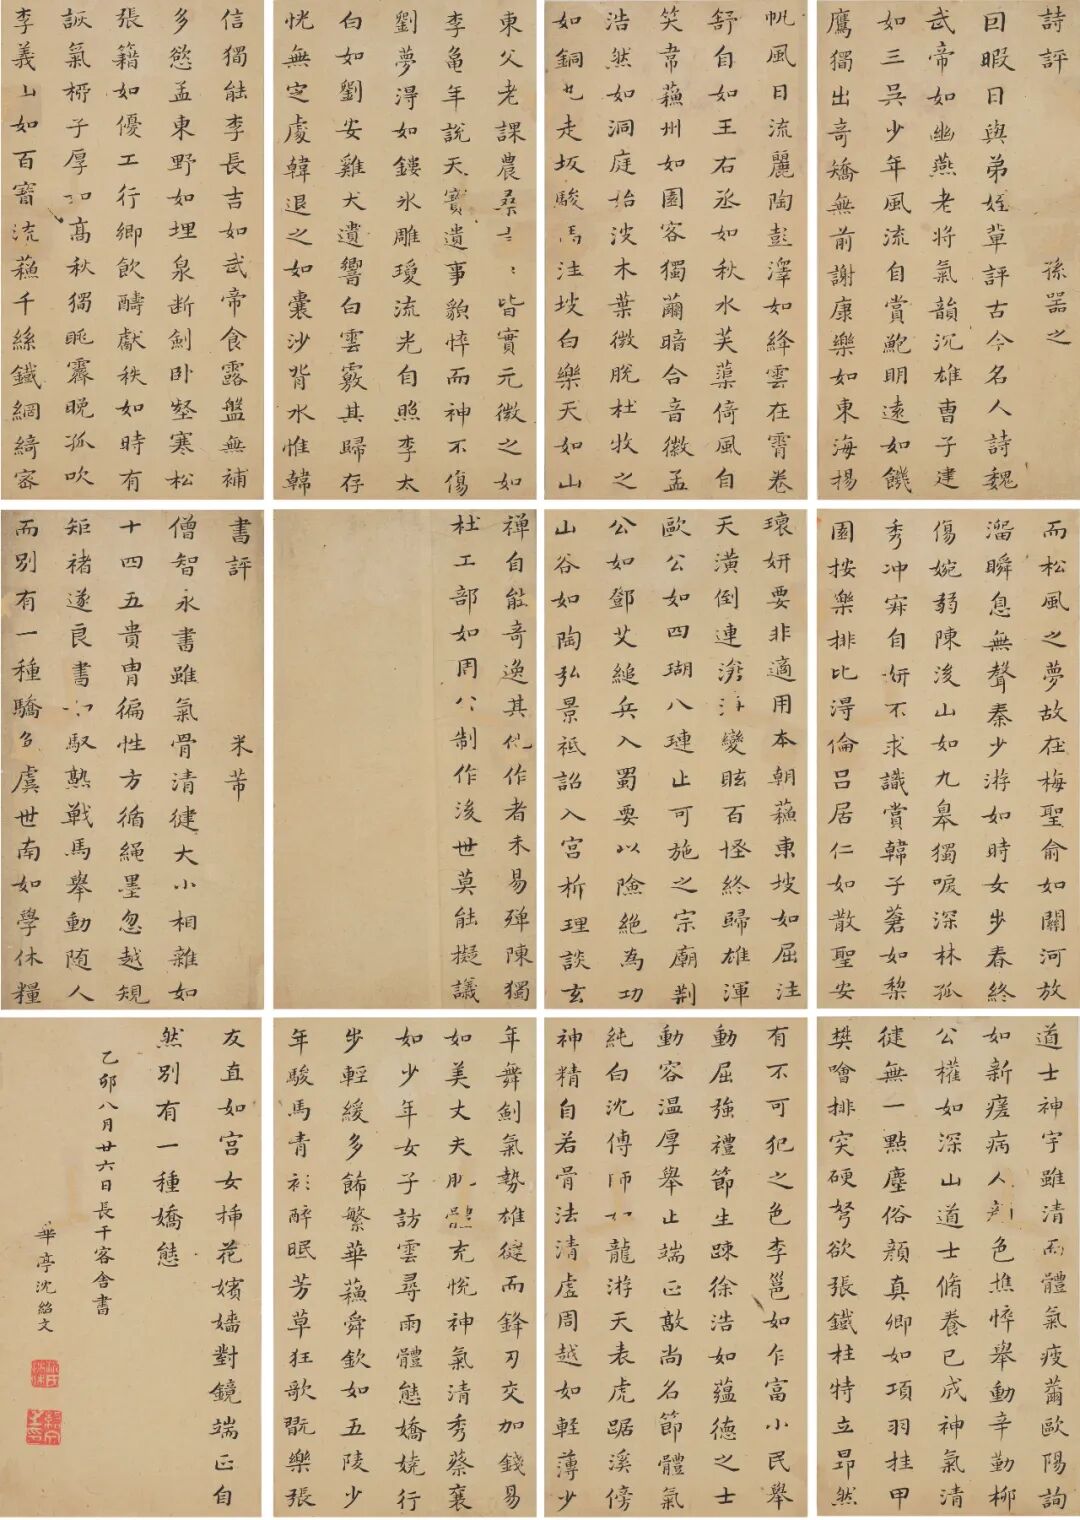 詩評 孫器之
回暇日與弟姪輩評古今名人詩魏
武帝如幽燕老將氣韻沉雄曹子建
如三吳少年風流自賞鮑明遠如饑
鷹獨出奇矯無前謝康樂如東海揚
帆風日流麗陶彭澤如絳雲在霄卷
舒自如王右丞如秋水芙蕖倚風自
笑韋蘇州如園客獨繭暗合音徽孟
浩然如洞庭始波木葉微脫杜牧之
如銅丸走坂駿馬注坡白樂天如山
東父老課農桑言言皆實元微之如
李龜年說天寶遺事貌悴而神不傷
劉夢得如鏤冰雕瓊流光自照李太
白如劉安雞犬遺響白雲覈其歸存
恍無定處韓退之如囊沙背水惟韓
信獨能李長吉如武帝食露盤無補
多慾孟東野如埋泉斷劍卧壑寒松
張籍如優工行鄉飲醻獻秩如時有
詼氣柳子厚如高秋獨眺霽晚孤吹
李義山如百寶流蘇千絲鐵網綺密
而松風之夢故在梅聖俞如關河放
溜瞬息無聲秦少游如時女步春終
傷婉弱陳後山如九臯獨唳深林孤
秀冲寂自妍不求識賞韓子蒼如棃
園按樂排比得倫呂居仁如散聖安
瓌妍要非適用本朝蘇東坡如屈注
天潢倒連滄海變眩百怪終歸雄渾
歐公如四瑚八璉止可施之宗廟荆
公如鄧艾縋兵入蜀要以險絕為功
山谷如陶弘景祗詔入宮析理談玄
禪自能奇逸其他作者未易殫陳獨
杜工部如周公制作後世莫能擬議
書評 米芾
僧智永書雖氣骨清健大小相雜如
十四五貴胄徧性方循繩墨忽越規
矩褚遂良書如馭熟戰馬舉動隨人
而別有一種驕多虞世南如學休糧
道士神宇雖清而體氣疲薾歐陽詢
如新瘥病人顏色憔悴舉動辛勤柳
公權如深山道士脩養已成神氣清
健無一點塵俗顏真卿如項羽挂甲
樊噲排突硬弩欲張鐵柱特立昂然
有不可犯之色李邕如乍富小民舉
動屈強禮節生踈徐浩如蘊德之士
動容温厚舉止端正敦尚名節體氣
純白沈傳師如龍游天表虎踞溪傍
神精自若骨法清虛周越如輕薄少
年舞劍氣勢雄健而鋒刃交加錢易
如美丈夫肌體充悅神氣清秀蔡襄
如少年女子訪雲尋雨體態嬌嬈行
步輕緩多飾繁華蘇舜欽如五陵少
年駿馬青衫醉眠芳草狂歌翫樂張
友直如宮女插花嬪嬙對鏡端正自
然別有一種嬌態
乙卯八月廿六日長干客舍書
華亭沈紹文